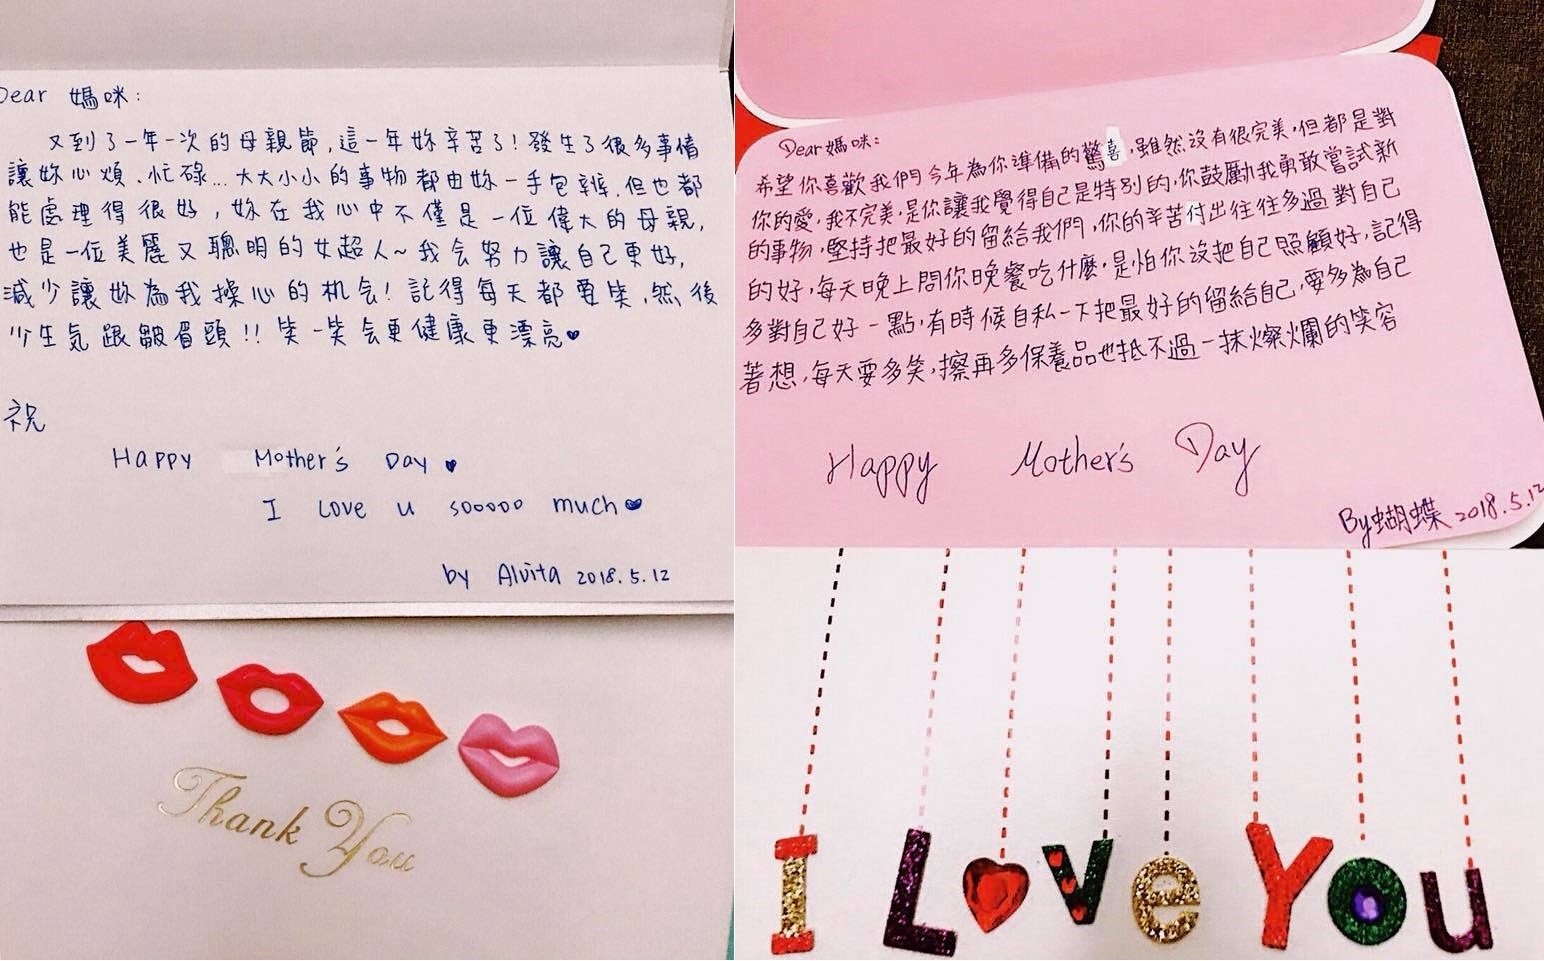 Dear 媽咪:
又到了一年一次的母親節,這一年妳辛苦了!發生了很多事情
讓妳心煩、忙碌...大大小小的事物都由妳一手包辦,但也都
能處理得很好,妳在我心中不僅是一位偉大的母親,
也是一位美麗又聰明的女超人~我会努力讓自己更好,
減少讓妳為我操心的机会!記得每天都要笑,然後
少生氣跟皺眉頭!!笑一笑会更健康更漂亮♥
祝
Happy Mother's Day ♥
I Love u sooooo much♥
by Alvita 2018.5.12
Thank You
Dear媽咪:
希望你喜歡我們今年為你準備的驚喜,雖然沒有很完美,但都是對
你的愛,我不完美,是你讓我覺得自己是特別的,你鼓勵我勇敢嘗試新
的事物,堅持把最好的留給我們,你的辛苦付出往往多過對自己
的好,每天晚上問你晚餐吃什麼,是怕你沒把自己照顧好,記得
多對自己好一點,有時候自私一下把最好的留給自己,要多為自己
著想,每天要多笑,擦再多保養品也抵不過一抹燦爛的笑容
Happy Mother's Day
By蝴蝶 2018.5.12
I Love You